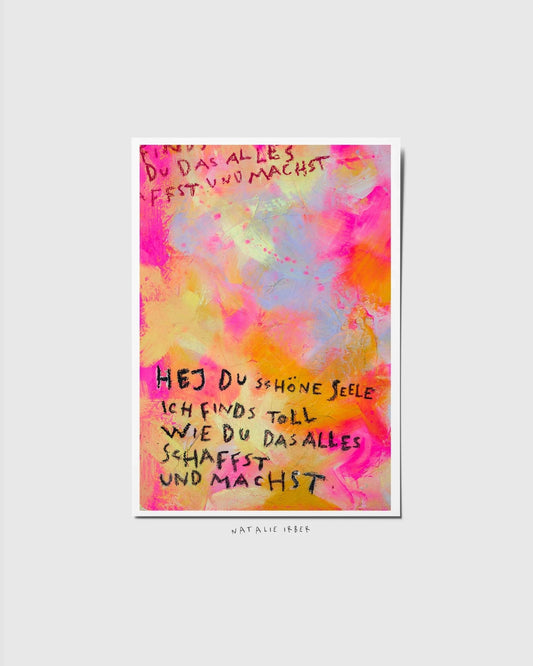 FINDS
DU DAS ALLES
FFST UND MACHST
HEJ DU SCHÖNE SEELE
ICH FINDS TOLL
WIE DU DAS ALLES
SCHAFFST
UND MACHST.
NATALIE IRBER